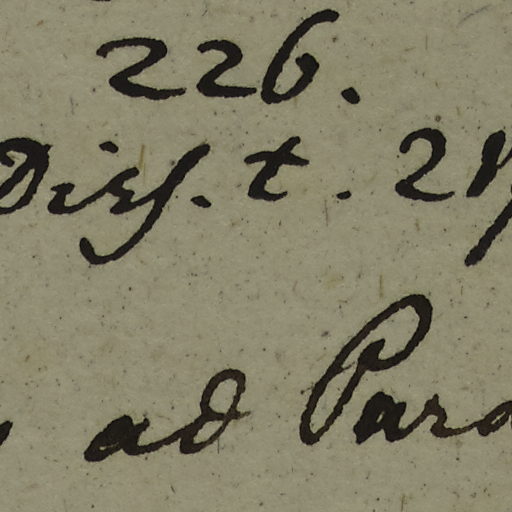 226.
Diss. t. 2
ad Para